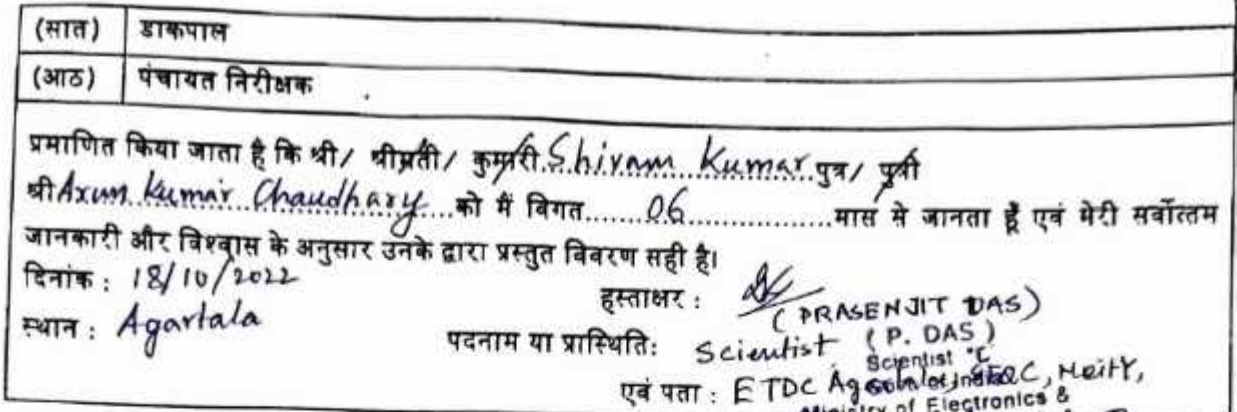 (सात) डाकपाल
(आठ) पंचायत निरीक्षक
प्रमाणित किया जाता है कि श्री/ श्रीमती/ कुमारी Shivam Kumar पुत्र/ पुत्री
श्री Arun Kumar Chaudhary को मैं विगत........06................मास से जानता हूँ एवं मेरी सर्वोत्तम
जानकारी और विश्वास के अनुसार उनके द्वारा प्रस्तुत विवरण सही है।
दिनांक : 18/10/2022
हस्ताक्षर :
(PRASENJIT DAS)
स्थान : Agartala
पदनाम या प्रास्थिति: Scientist
(P. DAS)
Scientist
एवं पता : ETDC STQC, MeitY,
Ministry of Electronics &